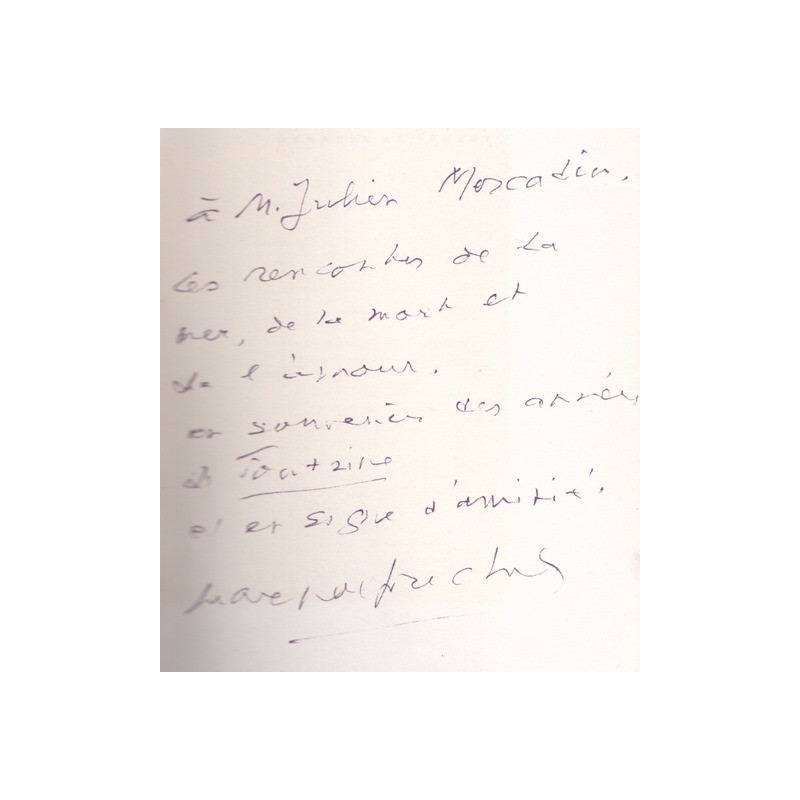 à M. Julien Moscadin.
Les rencontres de la
mer, de la mort et
de l'amour.
en souvenir des années
de Fontaine
et en signe d'amitié.